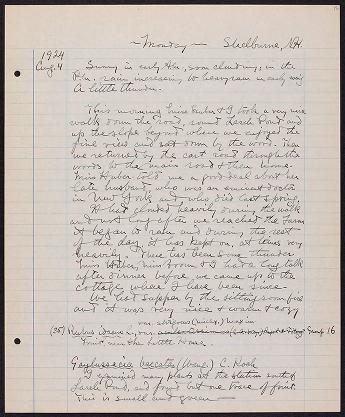 — Monday — Shelburne, N.H.
1924
Aug. 4
Sunny in early A.M., soon clouding, in the
P.M. rain increasing to heavy rain in early
A little thunder.
This morning Miss Huber & I took a very nice
walk down the road, round Larch Pond and
up the slope beyond where we enjoyed the
fine view and sat down by the wood. Then
we returned by the cart road through the
woods to the main road & then home.
Miss Huber told me a good deal about her
late husband, who was an eminent doctor
in New York and who died last spring.
It had clouded heavily during the walk
and not long after we reached the Farm
it began to rain and during the rest
of the day it has kept on, at times very
heavily. There has been some thunder.
Miss Huber, Miss & I had a long talk
after dinner before we came up to the
cottage where I have been since.
We had supper by the sitting room fire
and it was very nice & warm & cozy
var. strigosus (Michx.)
(35) Rubus idaeus L., var. 16
fruit, near the little House.
Gaylussacia baccata (Wang.) C. Koch
I examined many plants at the station south of
Larch Pond, and found but one trace of fruit.
This is small and green —